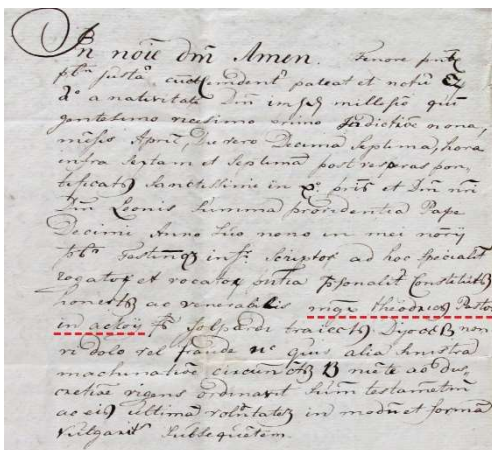 In noīe dnī Amen. Tenore pntz
pbn justo. cuctis evidentr pateat et notū
qo a nativitate Dni in 1521 millesio quin
gentesimo vicesimo primo Indictiōe nona,
mēsis Aprīl, Die vero Decima Septima, hora
infra Sextam et Septimā post vesperas pon,
tificatz Sanctissimi in Xo pris et Dni nri
Dni Leonis Summa providentia Pape
Decimi Anno Suo nono in mei norij
pbn Testiumqz infr. Scriptor ad hoc Specialit
rogator et vocator pntia psonalit Constitutz
honestz ac venerabilis mgr theodricz Pastor
in acloy
vi dolo vel fraude nc quis alia sinistra
machinatiōe circunctz mēte ac dis,
cretiōe vigens ordinavit Suum testamētm
ac eiz ultimā volūtatez in modū et formā
Vulgarit Subsequētem.